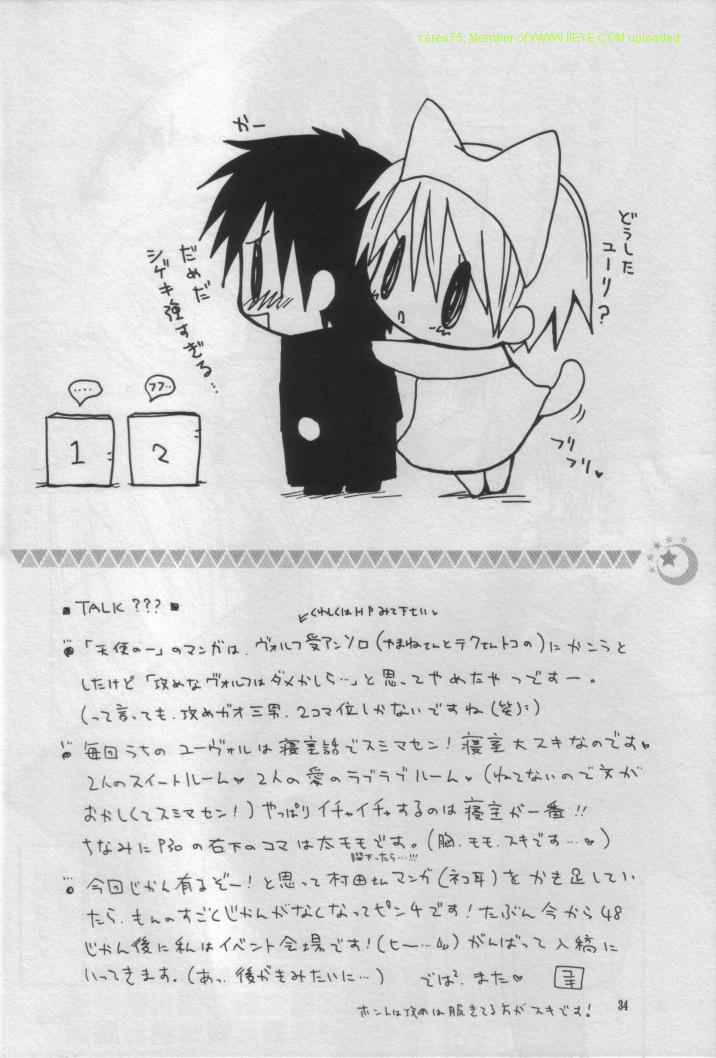 ceres75, Member of WWW.IIEYE.COM uploaded
かー
どうした
ユーリ?
だめだ
シゲキ強すぎる…
‥‥
フフ‥
1
2
フリ
フリ♥
■ TALK ??? ■
くわしくはHPみて下さい♥
「天使の一」のマンガは、ヴォルフ受アンソロ(やまねさんとテクさんトコの)にかこうと
したけど「攻めなヴォルフはダメかしら…」と思ってやめたやつですー。
(って言っても、攻めガオ三男、2コマ位しかないですね(笑)：)
毎回うちのユーヴォルは寝室話でスミマセン!寝室大スキなのです♥
2人のスイートルーム♥ 2人の愛のラブラブルーム♥(ねてないので文が
おかしくてスミマセン!)やっぱりイチャイチャするのは寝室が一番!!
ちなみにP30の右下のコマは太モモです。(胸、モモ、スキです…♥)
今回じかん有るぞー!と思って村田さんマンガ(ネコ耳)をかき足してい
たら、ものすごくじかんがなくなってピンチです!たぶん今から48
じかん後に私はイベント会場です!(ヒー…)がんばって入稿に
いってきます。(あっ、後がきみたいに…) では²、また♥
ホントは攻めは服きてる方がスキです!
34